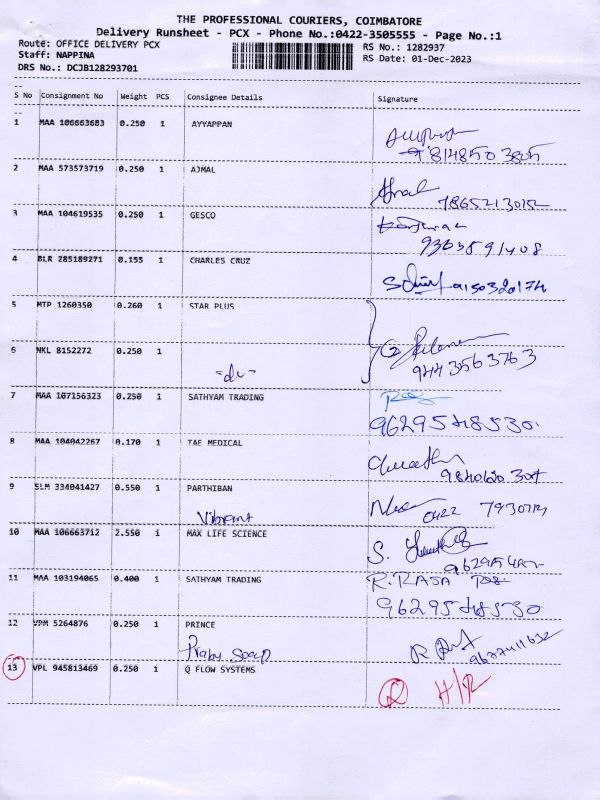 THE PROFESSIONAL COURIERS, COIMBATORE
Delivery Runsheet - PCX - Phone No.:0422-3505555 - Page No.:1
Route: OFFICE DELIVERY PCX
RS No.: 1282937
Staff: NAPPINA
RS Date: 01-Dec-2023
DRS No.: DCJB128293701
S No Consignment No Weight PCS Consignee Details Signature
1 MAA 106663683 0.250 1 AYYAPPAN
2 MAA 573573719 0.250 1 AJMAL
3 MAA 104619535 0.250 1 GESCO
9363591408
4 BLR 285189271 0.155 1 CHARLES CRUZ
9150320174
5 MTP 1260350 0.260 1 STAR PLUS
6 NKL 8152272 0.250 1
-do-
9443563763
7 MAA 107156323 0.250 1 SATHYAM TRADING
9629548530
8 MAA 104042267 0.170 1 TAE MEDICAL
9 SLM 334041427 0.550 1 PARTHIBAN
Vibrant
10 MAA 106663712 2.550 1 MAX LIFE SCIENCE
11 MAA 103194065 0.400 1 SATHYAM TRADING
R. RAJA
9629548530
12 VPM 5264876 0.250 1 PRINCE
Prabu Soap
13 VPL 945813469 0.250 1 Q FLOW SYSTEMS